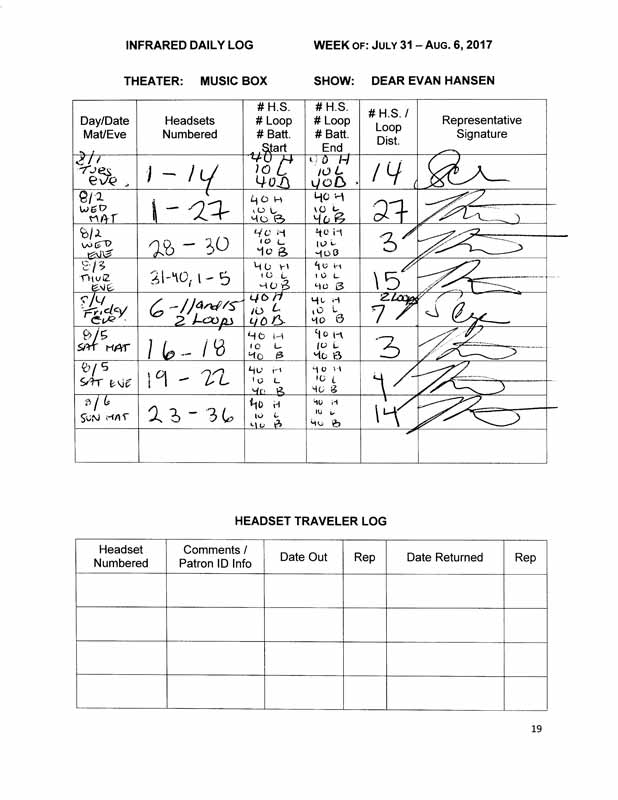 INFRARED DAILY LOG WEEK OF: JULY 31 – AUG. 6, 2017
THEATER: MUSIC BOX SHOW: DEAR EVAN HANSEN
Day/Date
Mat/Eve
Headsets
Numbered
# H.S.
# Loop
# Batt.
Start
# H.S.
# Loop
# Batt.
End
# H.S. /
Loop
Dist.
Representative
Signature
8/1
Tues
eve.
1 – 14
40 H
10 L
40 B
40 H
10 L
40 B
14
8/2
WED
MAT
1 – 27
40 H
10 L
40 B
40 H
10 L
40 B
27
8/2
WED
EVE
28 – 30
40 H
10 L
40 B
40 H
10 L
40 B
3
8/3
THUR
EVE
31-40, 1-5
40 H
10 L
40 B
40 H
10 L
40 B
15
8/4
Friday
eve
6 – 11 and 15
2 Loops
40 H
10 L
40 B
40 H
10 L
40 B
2 Loops
7
8/5
SAT MAT
16 – 18
40 H
10 L
40 B
40 H
10 L
40 B
3
8/5
SAT EVE
19 – 22
40 H
10 L
40 B
40 H
10 L
40 B
4
8/6
SUN MAT
23 – 36
40 H
10 L
40 B
40 H
10 L
40 B
14
HEADSET TRAVELER LOG
Headset
Numbered
Comments /
Patron ID Info
Date Out
Rep
Date Returned
Rep
19